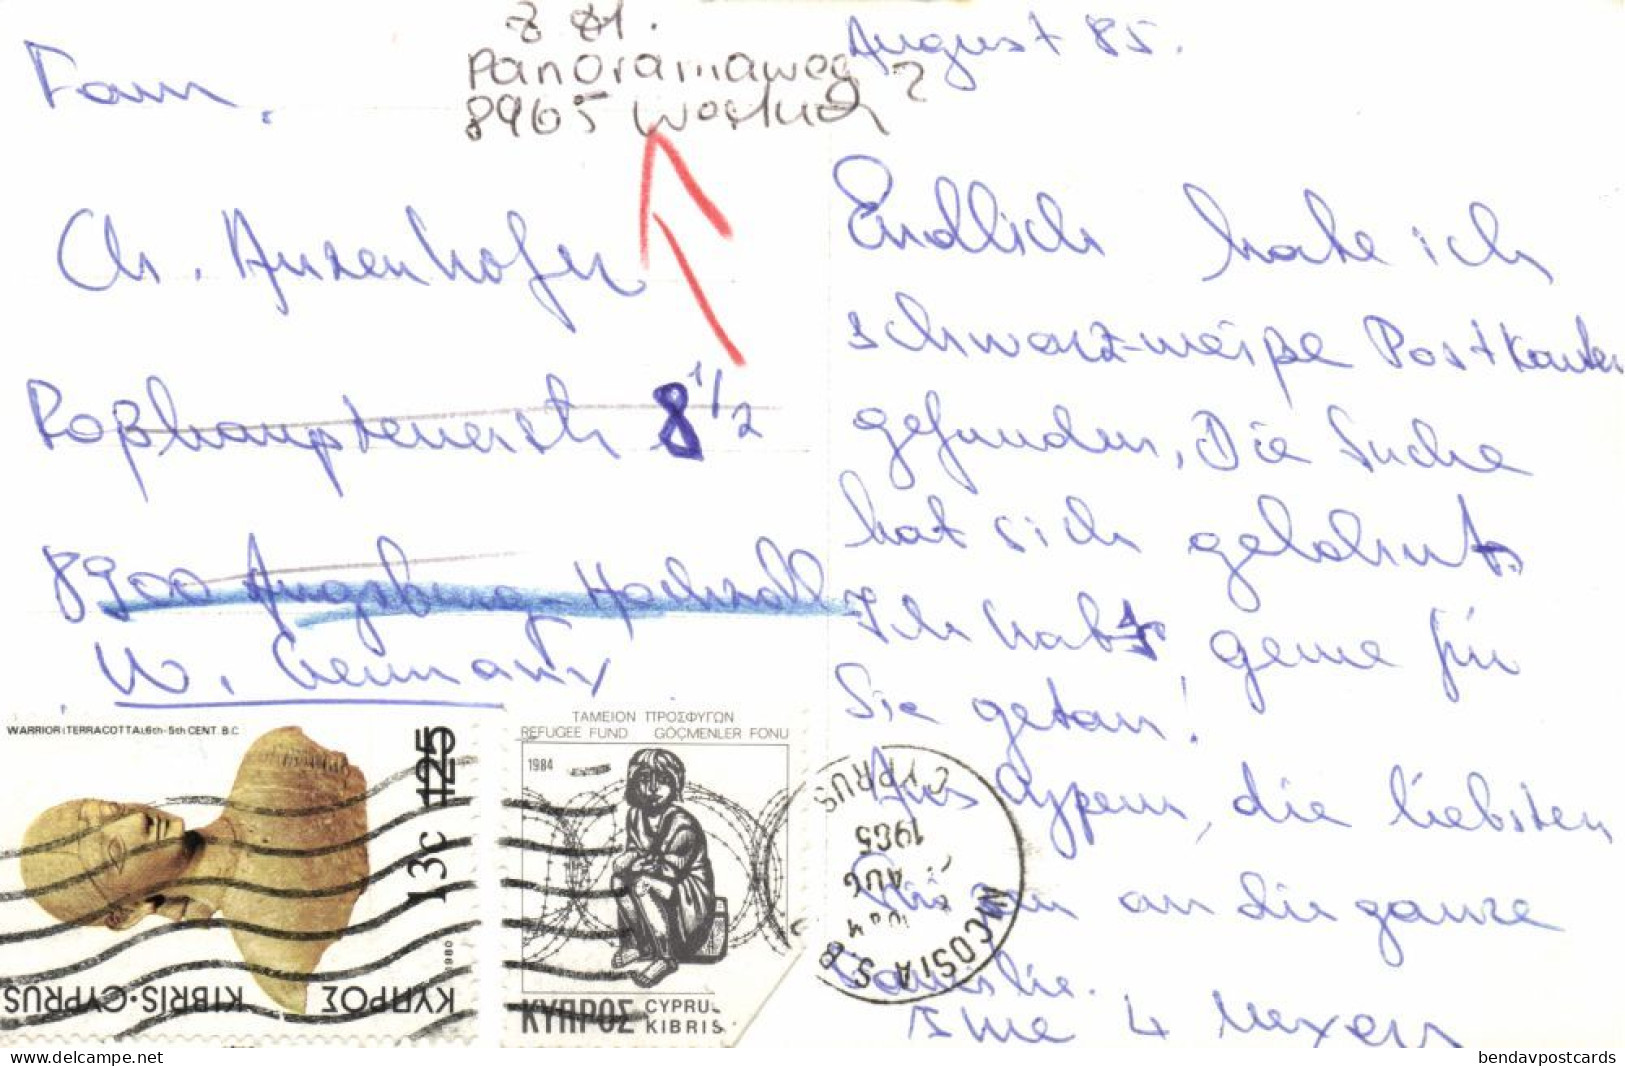 z Zt.
Panoramaweg 2
8965
Fam.
Ch. Anzenhofer
Roßhauptenerstr 8 1/2
8900 Augsburg-Hochzoll
W. Germany
August 85.
Endlich habe ich
schwarz-weiße Postkarten
gefunden, Die Suche
hat sich gelohnt.
Ich habs gerne für
Sie getan!
Aus Zypern, die liebsten
Grüße an die ganze
Familie.
Ihre 4
WARRIOR (TERRACOTTA), 6th-5th CENT. B.C
125
13c
1980
ΚΥΠΡΟΣ KIBRIS·CYPRUS
ΤΑΜΕΙΟΝ ΠΡΟΣΦΥΓΩΝ
REFUGEE FUND GÖÇMENLER FONU
1984
ΚΥΠΡΟΣ CYPRUS
KIBRIS
NICOSIA S.
AUG
1985
CYPRUS
www.delcampe.net
bendavpostcards